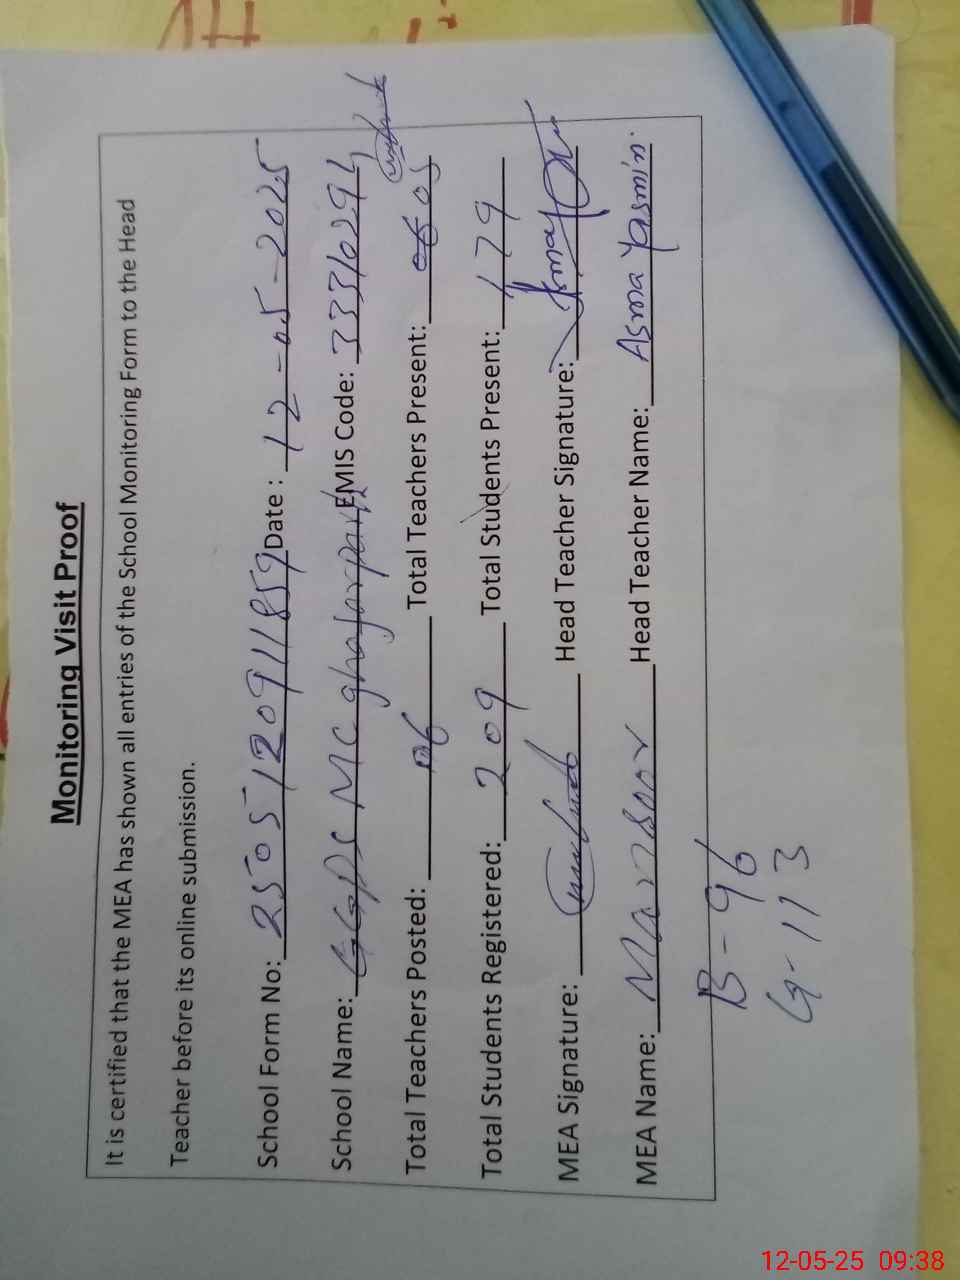 Monitoring Visit Proof
It is certified that the MEA has shown all entries of the School Monitoring Form to the Head
Teacher before its online submission.
School Form No: 2505120911859 Date : 12-05-2025
School Name: GGPS MC ghafarpark EMIS Code: 33310294
Total Teachers Posted: 06 Total Teachers Present: 06 05
Total Students Registered: 209 Total Students Present: 179
MEA Signature: Head Teacher Signature:
MEA Name: Manzoor Head Teacher Name: Asma Yasmin.
B-96
G-113
12-05-25 09:38